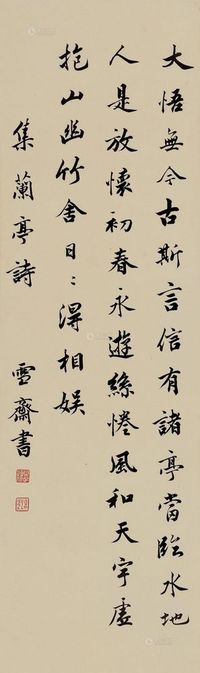 大悟無今古斯言信有諸亭當臨水地
人是放懷初春永遊絲惓風和天宇虛
抱山幽竹舍日〻得相娱
集蘭亭詩
雪齋書